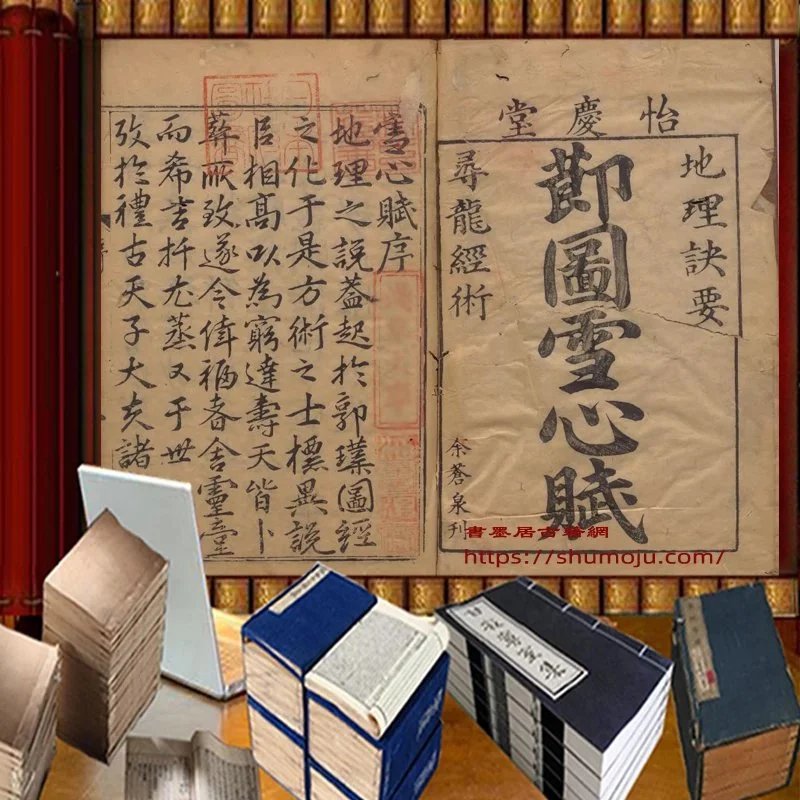 怡慶堂
地理訣要
莭圖雪心賦
尋龍經術
余蒼泉刊
雪心賦序
地理之說葢起扵郭璞圖經
之化于是方術之士標異說
相髙以為窮達壽夭皆卜
葬所致遂令倖福者舍靈
而希吉扞尤蒸又于世
攷扵禮古天子大夫諸
書墨居古籍網
https://shumoju.com/